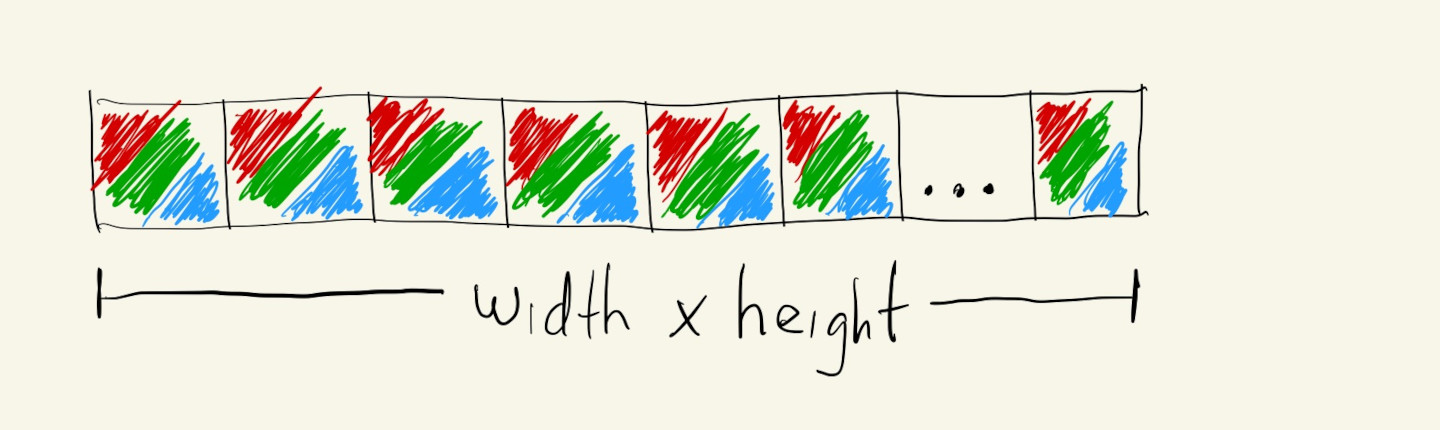 ...
width x height